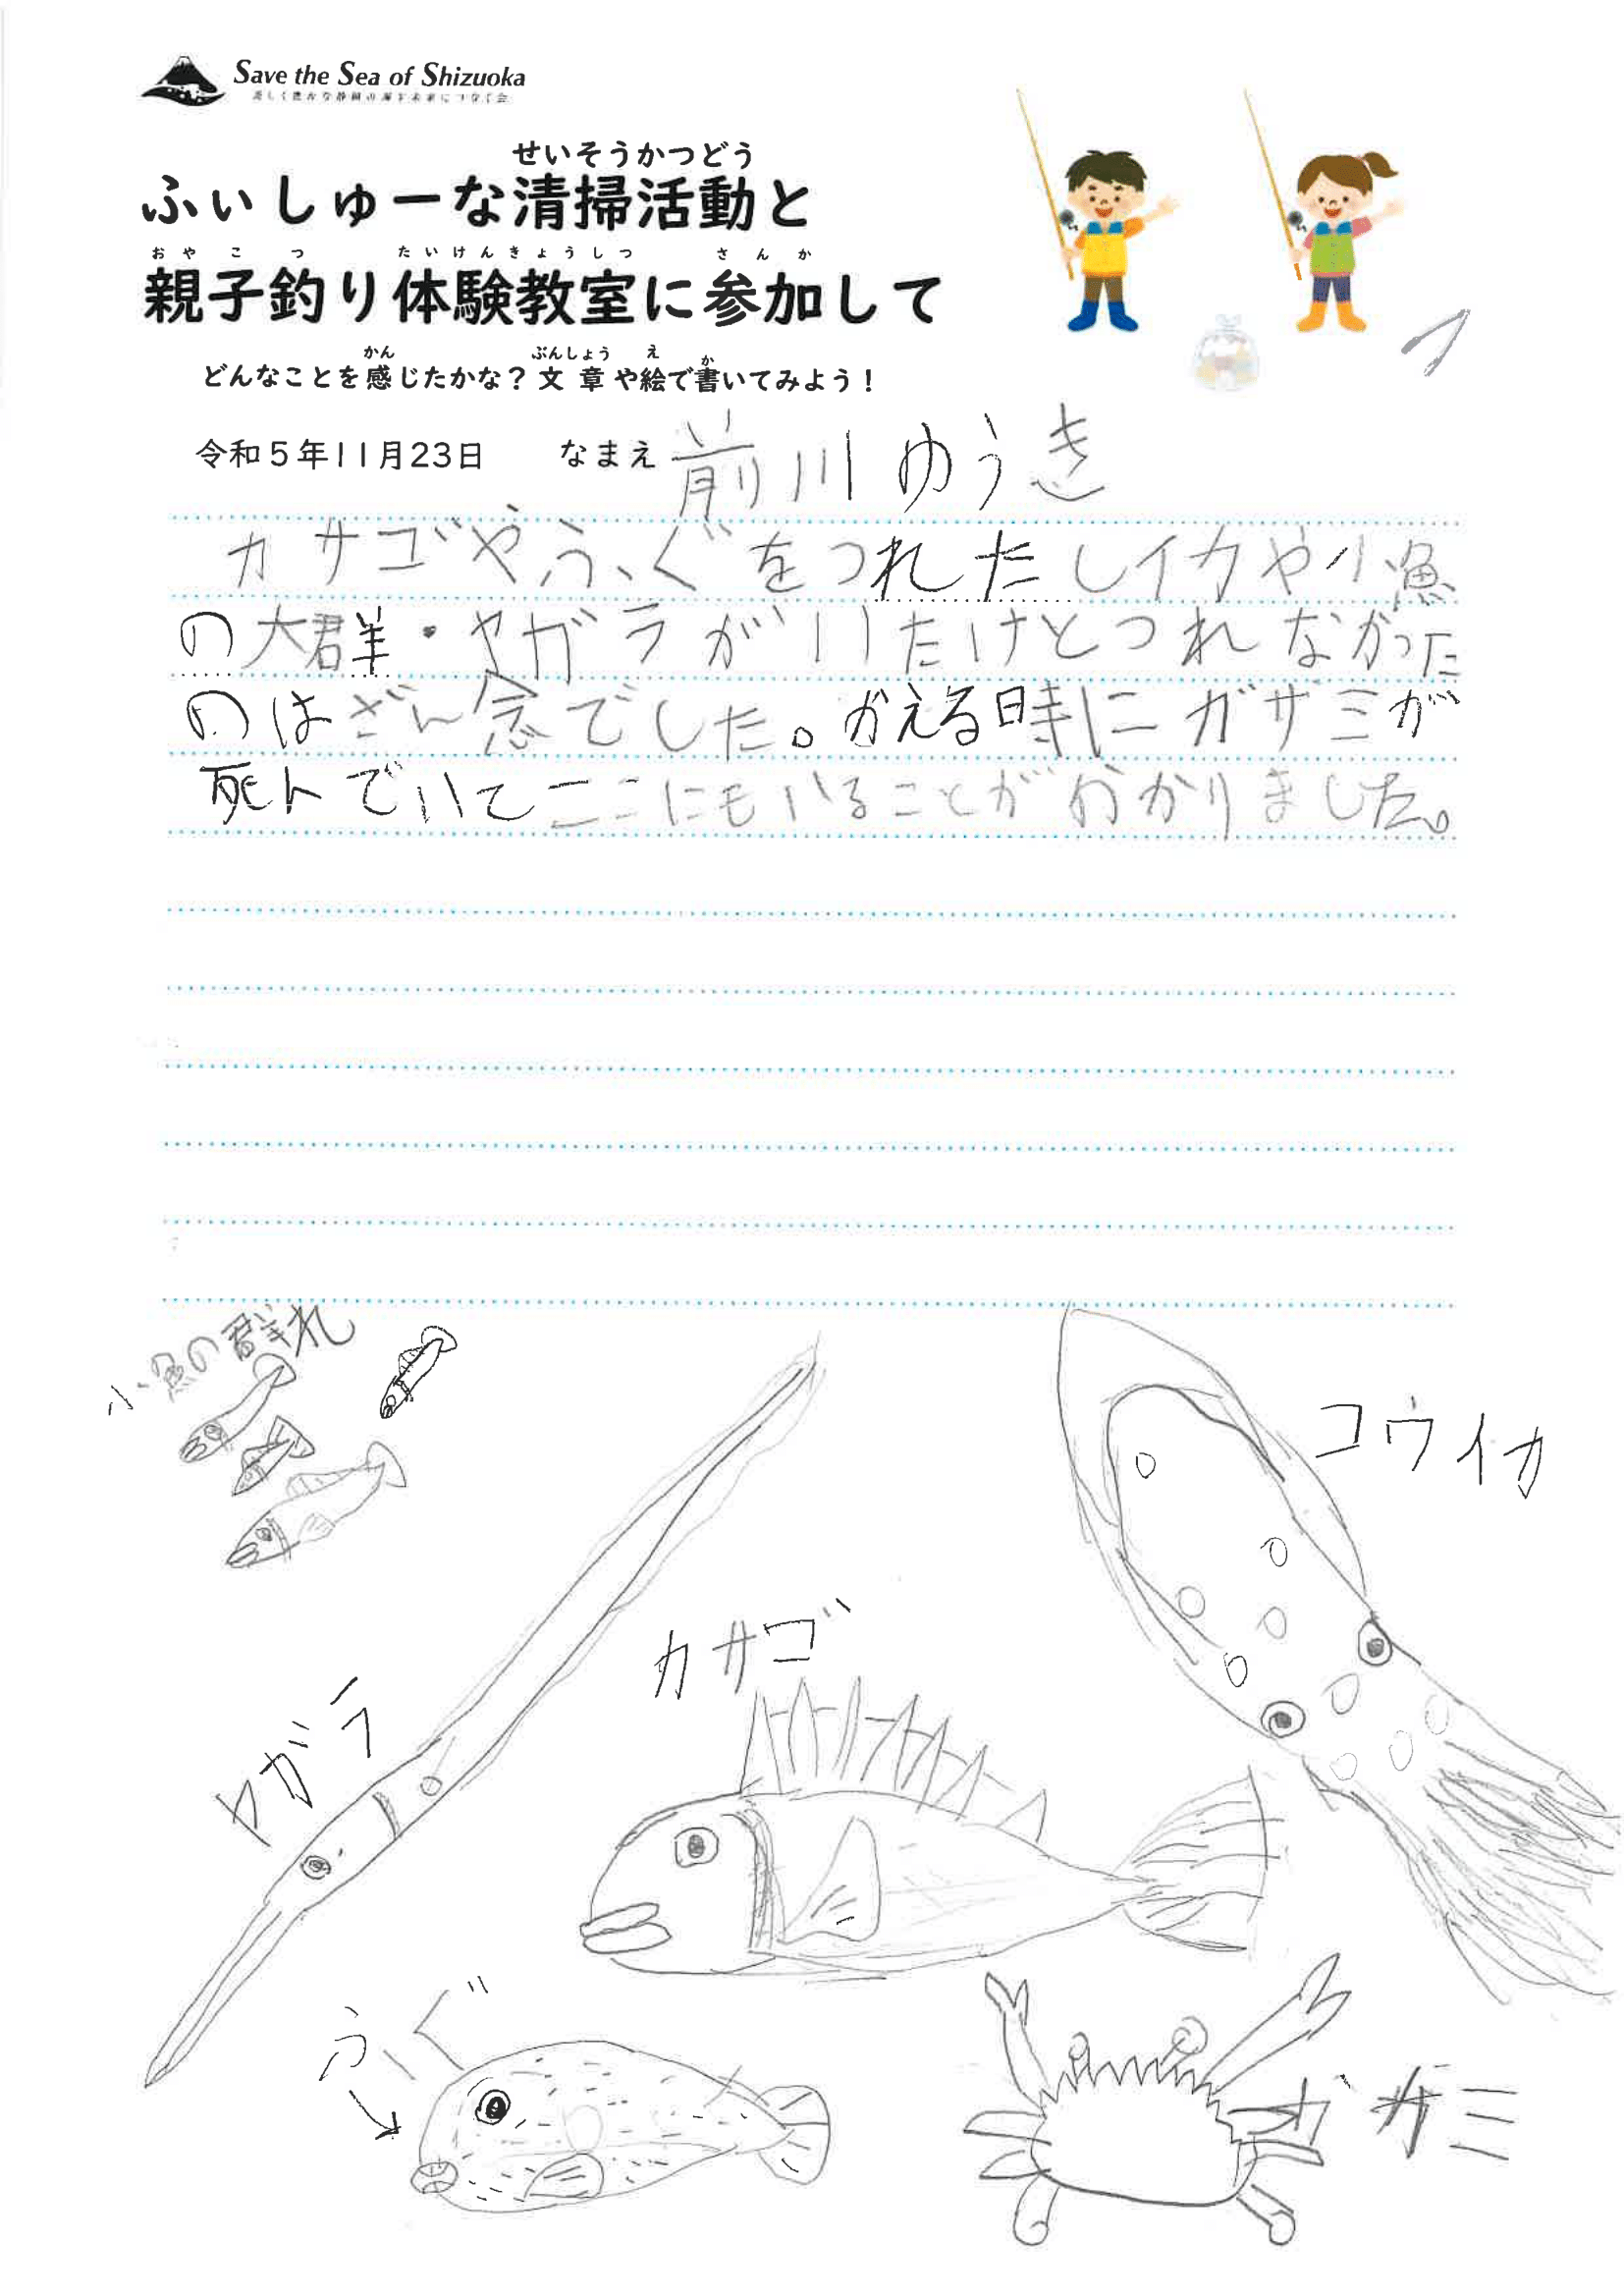 Save the Sea of Shizuoka
美しく豊かな静岡の海を未来につなぐ会
せいそうかつどう
ふぃしゅーな清掃活動と
おやこつ たいけんきょうしつ さんか
親子釣り体験教室に参加して
かん ぶんしょう え か
どんなことを感じたかな？文章や絵で書いてみよう！
令和5年11月23日 なまえ 前川ゆうき
カサゴやふぐをつれたしイカや小魚
の大群・ヤガラがいたけどつれなかった
のはざん念でした。かえる時にガザミが
死んでいてここにもいることがわかりました。
小魚の群れ
コウイカ
カサゴ
ヤガラ
ふぐ
ガザミ